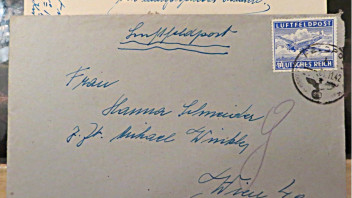 Luftfeldpost
LUFTFELDPOST
DEUTSCHES REICH
Frau
Hanna Schneider
z. Zt. Michael Winkler
Wien